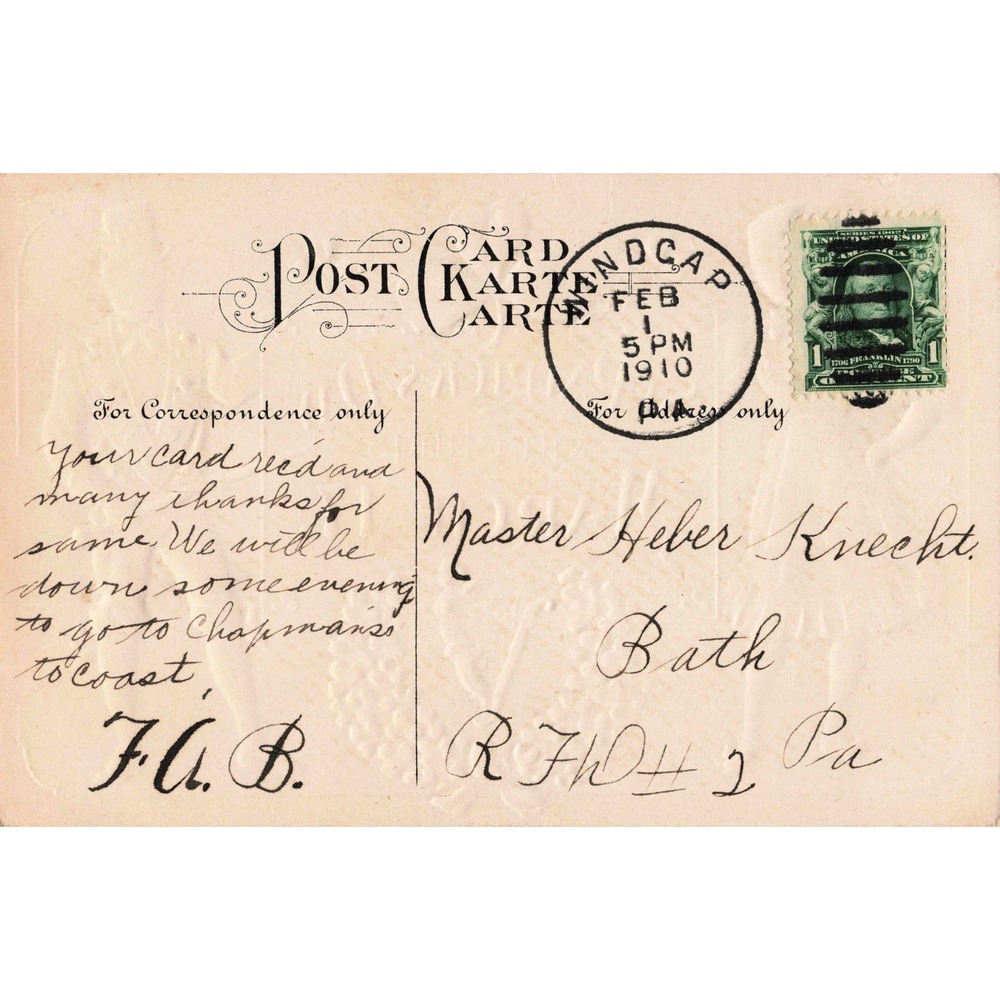 POST CARD
KARTE
CARTE
WINDGAP
FEB
1
5 PM
1910
PA.
SERIES 1902
UNITED STATES OF
AMERICA
1 1706 FRANKLIN 1790 1
POSTAGE
ONE CENT
For Correspondence only
For Address only
Your card rec'd and
many thanks for
same. We will be
down some evening
to go to Chapman's
to coast,
F. A. B.
Master Heber Knecht.
Bath
R F D # 2 Pa